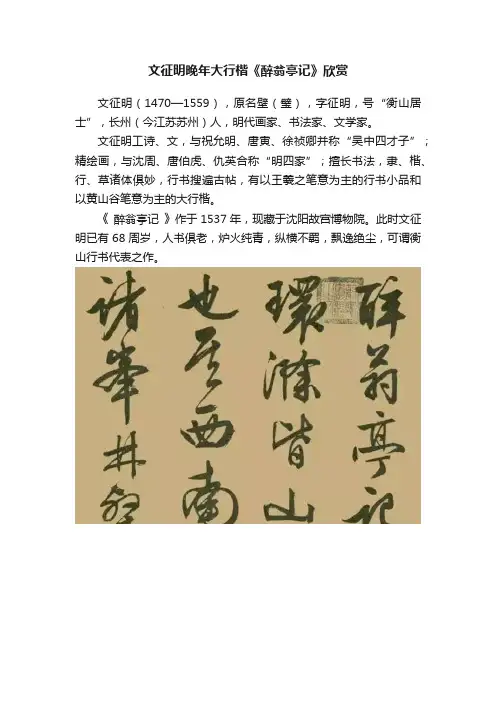 文征明晚年大行楷《醉翁亭记》欣赏
文征明（1470—1559），原名壁（璧），字征明，号“衡山居
士”，长州（今江苏苏州）人，明代画家、书法家、文学家。
文征明工诗、文，与祝允明、唐寅、徐祯卿并称“吴中四才子”；
精绘画，与沈周、唐伯虎、仇英合称“明四家”；擅长书法，隶、楷、
行、草诸体俱妙，行书搜遍古帖，有以王羲之笔意为主的行书小品和
以黄山谷笔意为主的大行楷。
《 醉翁亭记 》作于1537年，现藏于沈阳故宫博物院。此时文征
明已有68周岁，人书俱老，炉火纯青，纵横不羁，飘逸绝尘，可谓衡
山行书代表之作。
醉翁亭記
環滁皆山
也其西南
諸峯林壑